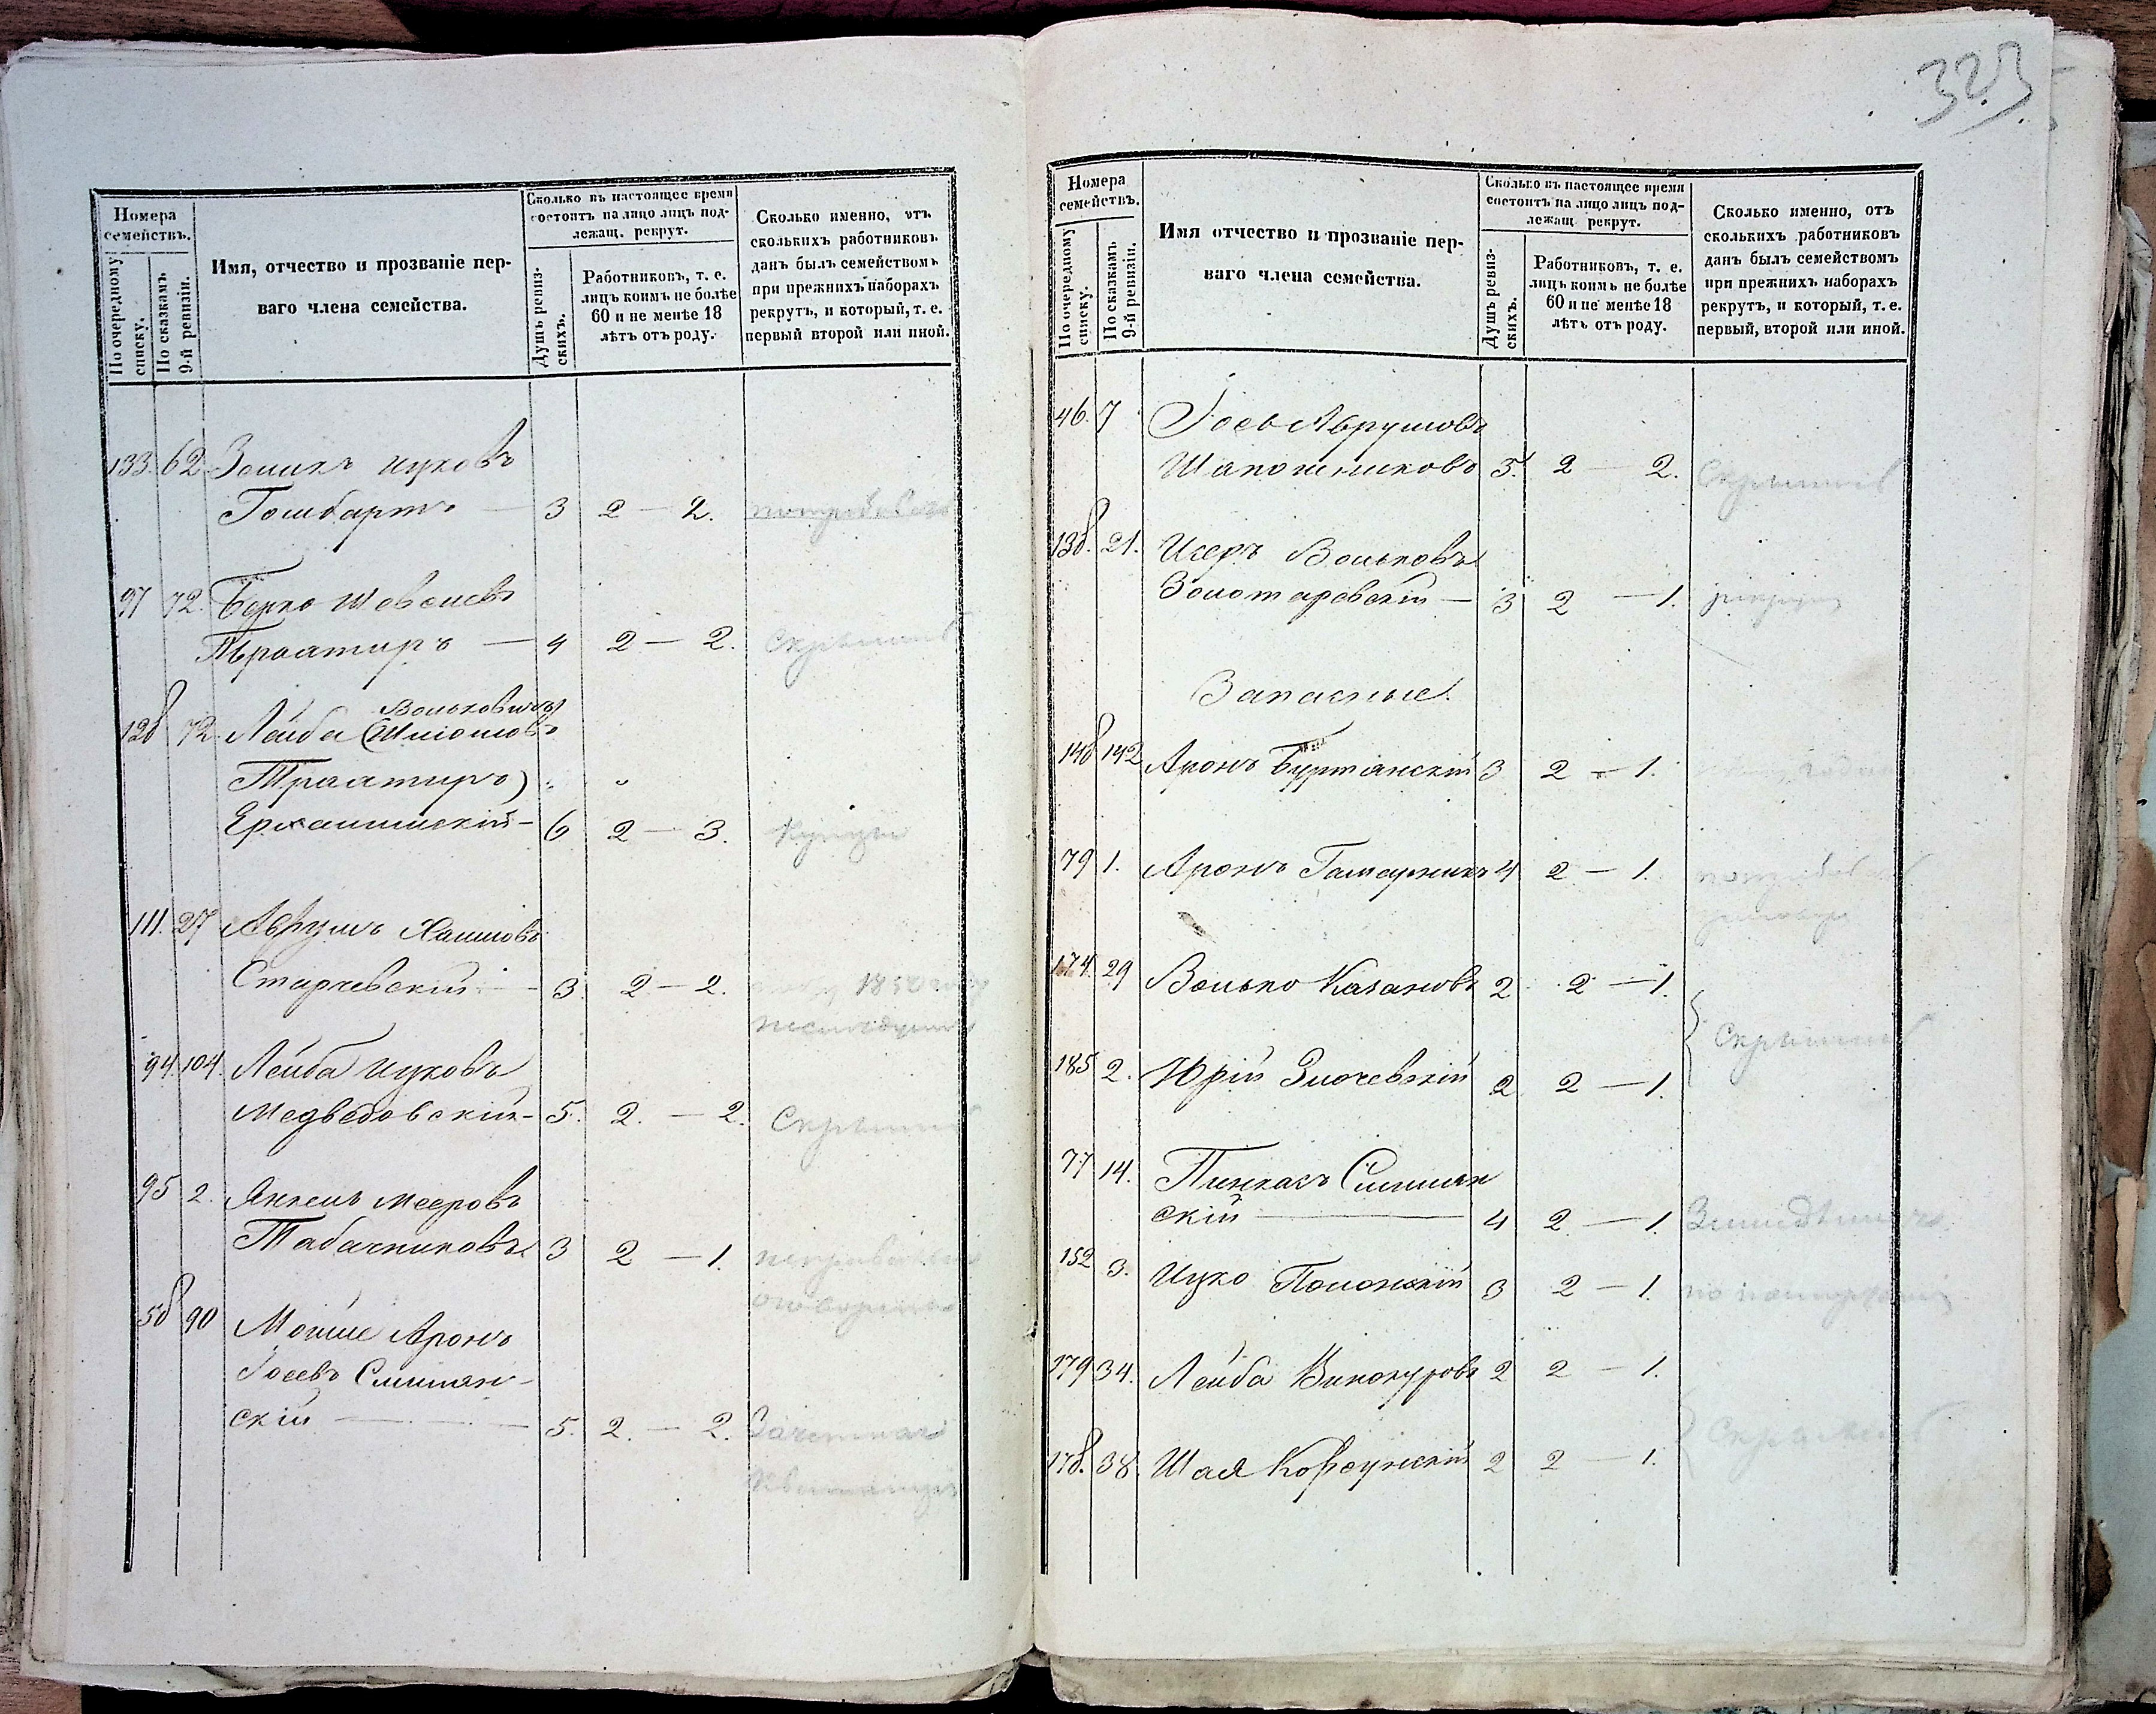 323
Номера
семействъ.
По очередному
списку.
По сказкамъ
9-й ревизіи.
Имя, отчество и прозваніе пер-
ваго члена семейства.
Сколько въ настоящее время
состоитъ на лицо лицъ под-
лежащ. рекрут.
Душъ ревиз-
скихъ.
Работниковъ, т. е.
лицъ коимъ не болѣе
60 и не менѣе 18
лѣтъ отъ роду.
Сколько именно, отъ
сколькихъ работниковъ
данъ былъ семействомъ
при прежнихъ наборахъ
рекрутъ, и который, т. е.
первый второй или иной.
133. 62 Зеликъ Ицковъ
Гомбартъ — 3 2 — 2.
97 72. Берко Шовелевъ
Трактиръ — 4 2 — 2. Скрылись
Вольковичъ
128 72 Лейба (Шліомовъ
Трактиръ)
6 2 — 3. Купцы
111. 27 Аврумъ Хаимовъ
Старчевскій — 3. 2 — 2. 1850 году
94. 104. Лейба Ицковъ
Медвѣдовскій — 5. 2. — 2. Скрылись
95 2. Янкель Мееровъ
Табачниковъ 3 2 — 1.
58 90 Мойше Аронъ
Іосевъ Смилян-
скій — 5. 2. — 2. Зачетная
квитанція
Номера
семействъ.
По очередному
списку.
По сказкамъ
9-й ревизіи.
Имя отчество и прозваніе пер-
ваго члена семейства.
Сколько въ настоящее время
состоитъ на лицо лицъ под-
лежащ. рекрут.
Душъ ревиз-
скихъ.
Работниковъ, т. е.
лицъ коимъ не болѣе
60 и не менѣе 18
лѣтъ отъ роду.
Сколько именно, отъ
сколькихъ работниковъ
данъ былъ семействомъ
при прежнихъ наборахъ
рекрутъ, и который, т. е.
первый, второй или иной.
46. 7 Іось Аврумовъ
Шапошниковъ 3. 2 — 2. Скрылись
138. 21. Исеръ Вольковъ
Золотаревскій — 3 2 — 1. рекрутъ
Запасные.
148 142 Аронъ Буртянскій 3 2 — 1.
79 1. Аронъ Гамарникъ 4 2 — 1.
174. 29 Волько Казановъ 2 2 — 1.
Скрылись
185 2. Юрій Злочевскій 2 2 — 1.
77 14. Пинкасъ Смилян
скій — 4 2 — 1.
152 3. Ицко Полонскій 3 2 — 1.
179 34. Лейба Винокуровъ 2 2 — 1.
Скрылись
178. 38. Шая Корсунскій 2 2 — 1.